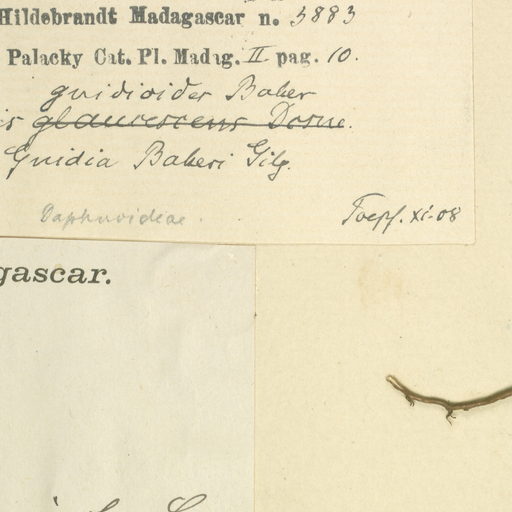 Hildebrandt Madagascar n. 3883
Palacky Cat. Pl. Madag. II pag. 10.
gnidioides Baker
is glaucescens Decne.
Gnidia Bakeri Gilg.
Daphnoideae.
Toepf. xi-08
gascar.